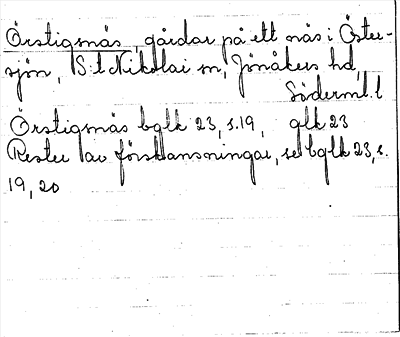 Örstigsnäs, gårdar på ett näs i Öster-
sjön, S:t Nikolai sn, Jönåkers hd,
Söderml. l
Örstigsnäs bglk 23, s.19, glk 23
Rester av förskansningar, se bglk 23, s.
19, 20